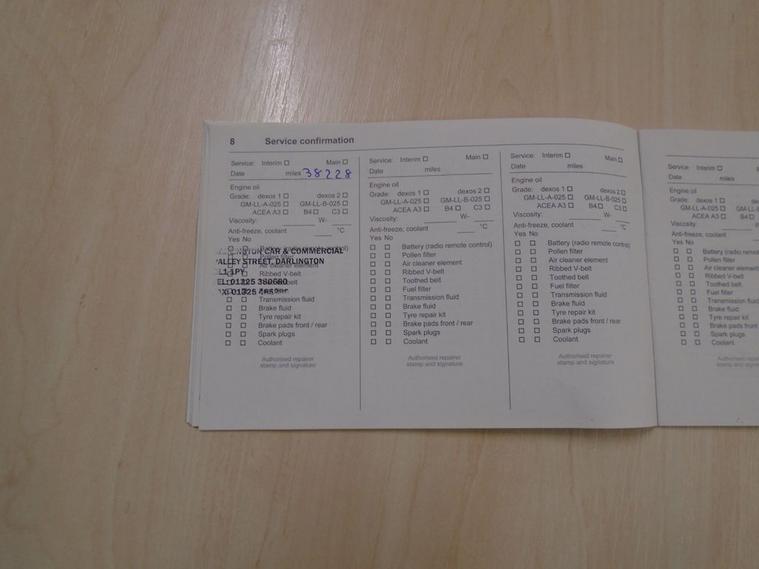 8 Service confirmation
Service: Interim ☐ Main ☐
Date miles 38228
Engine oil
Grade: dexos 1 ☐ dexos 2 ☐
GM-LL-A-025 ☐ GM-LL-B-025 ☐
ACEA A3 ☐ B4 ☐ C3 ☐
Viscosity: W-
Anti-freeze, coolant °C
Yes No
☐ ☐ Battery (radio remote control)
CAR & COMMERCIAL
STREET, DARLINGTON
☐ ☐ Ribbed V-belt
1PY
01325 380680
01325
☐ ☐ Transmission fluid
☐ ☐ Brake fluid
☐ ☐ Tyre repair kit
☐ ☐ Brake pads front / rear
☐ ☐ Spark plugs
☐ ☐ Coolant
Authorised repairer
stamp and signature
Service: Interim ☐ Main ☐
Date miles
Engine oil
Grade: dexos 1 ☐ dexos 2 ☐
GM-LL-A-025 ☐ GM-LL-B-025 ☐
ACEA A3 ☐ B4 ☐ C3 ☐
Viscosity: W-
Anti-freeze, coolant °C
Yes No
☐ ☐ Battery (radio remote control)
☐ ☐ Pollen filter
☐ ☐ Air cleaner element
☐ ☐ Ribbed V-belt
☐ ☐ Toothed belt
☐ ☐ Fuel filter
☐ ☐ Transmission fluid
☐ ☐ Brake fluid
☐ ☐ Tyre repair kit
☐ ☐ Brake pads front / rear
☐ ☐ Spark plugs
☐ ☐ Coolant
Authorised repairer
stamp and signature
Service: Interim ☐ Main ☐
Date miles
Engine oil
Grade: dexos 1 ☐ dexos 2 ☐
GM-LL-A-025 ☐ GM-LL-B-025 ☐
ACEA A3 ☐ B4 ☐ C3 ☐
Viscosity: W-
Anti-freeze, coolant °C
Yes No
☐ ☐ Battery (radio remote control)
☐ ☐ Pollen filter
☐ ☐ Air cleaner element
☐ ☐ Ribbed V-belt
☐ ☐ Toothed belt
☐ ☐ Fuel filter
☐ ☐ Transmission fluid
☐ ☐ Brake fluid
☐ ☐ Tyre repair kit
☐ ☐ Brake pads front / rear
☐ ☐ Spark plugs
☐ ☐ Coolant
Authorised repairer
stamp and signature
Service: Interim ☐
Date miles
Engine oil
Grade: dexos 1 ☐ dexos
GM-LL-A-025 ☐ GM-LL-B
ACEA A3 ☐ B4 ☐
Viscosity:
Anti-freeze, coolant
Yes No
☐ ☐ Battery (radio remote
☐ ☐ Pollen filter
☐ ☐ Air cleaner element
☐ ☐ Ribbed V-belt
☐ ☐ Toothed belt
☐ ☐ Fuel filter
☐ ☐ Transmission fluid
☐ ☐ Brake fluid
☐ ☐ Tyre repair kit
☐ ☐ Brake pads front
☐ ☐ Spark plugs
☐ ☐ Coolant
Authorised
stamp and